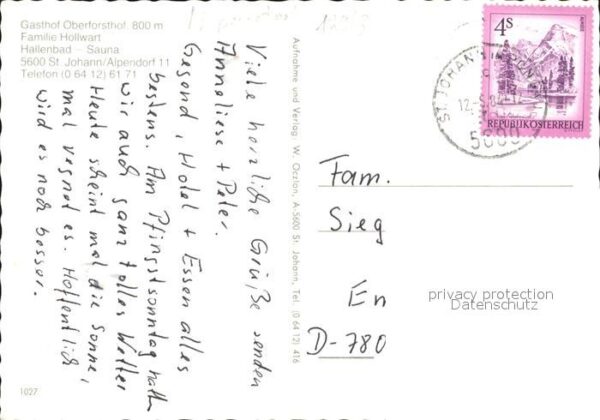 Gasthof Oberforsthof 800 m
Familie Hollwart
Hallenbad – Sauna
5600 St. Johann/Alpendorf 11
Telefon (0 64 12) 61 71
Viele herzliche Grüße senden
Anneliese + Peter.
Gegend, Hotel + Essen alles
bestens. Am Pfingstsonntag hatten
wir auch ganz tolles Wetter
Heute scheint mal die Sonne,
mal regnet es. Hoffentlich
wird es noch besser.
Aufnahme und Verlag W. Oczlon, A-5600 St. Johann, Tel. (0 64 12) 416
4 S
REPUBLIK ÖSTERREICH
ST. JOHANN IM PONGAU
5600
Fam.
Sieg
En
D-780
privacy protection
Datenschutz
1027